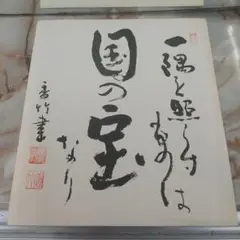 一隅を照らす
ものは
国の宝
なり
香竹書